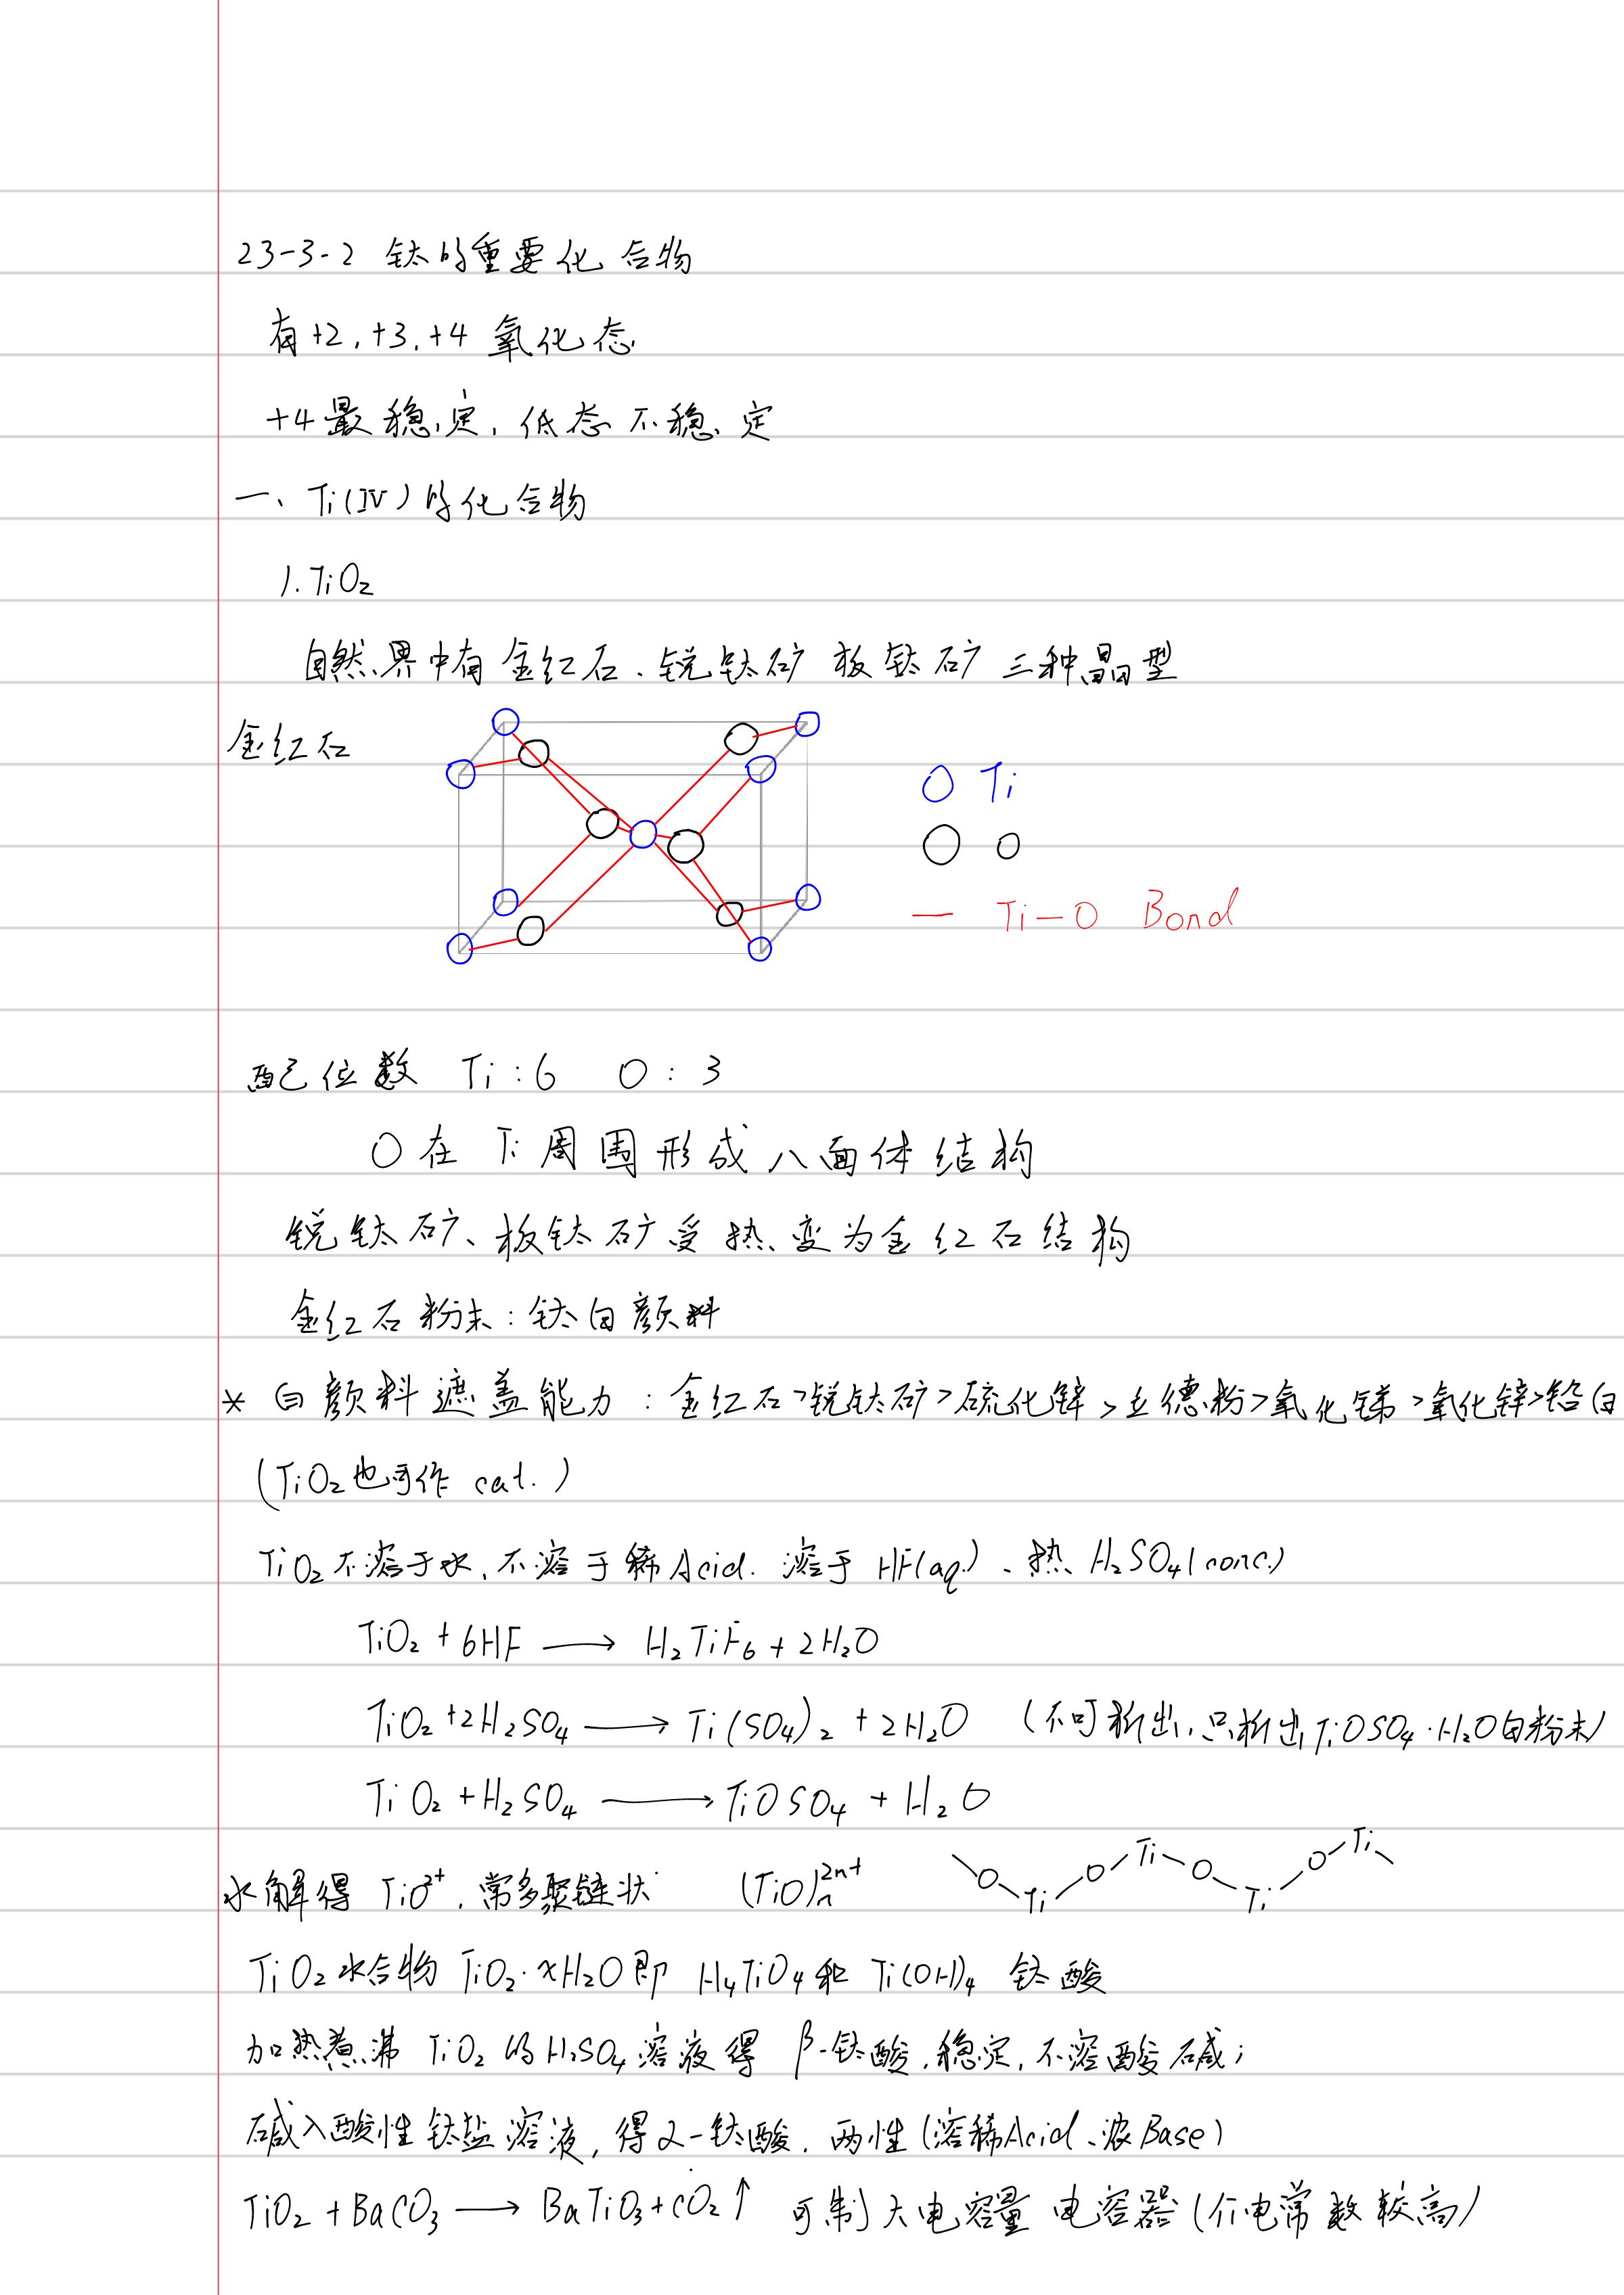 23-3-2 钛的重要化合物
有+2,+3,+4 氧化态
+4最稳定,低态不稳定
一、Ti(IV)的化合物
1. TiO₂
自然界中有金红石、锐钛矿 板钛矿 三种晶型
金红石
O Ti
O O
— Ti-O Bond
配位数 Ti:6 O:3
O在Ti周围形成八面体结构
锐钛矿、板钛矿受热变为金红石结构
金红石粉末:钛白颜料
* 白颜料遮盖能力:金红石>锐钛矿>硫化锌>立德粉>氧化锑>氧化锌>铅白
(TiO₂也可作 cat.)
TiO₂不溶于水,不溶于稀Acid. 溶于 HF(aq.)、热 H₂SO₄(conc.)
TiO₂+6HF ⟶ H₂TiF₆+2H₂O
TiO₂+2H₂SO₄ ⟶ Ti(SO₄)₂+2H₂O (不可析出,只析出TiOSO₄·H₂O白粉末)
TiO₂+H₂SO₄ ⟶ TiOSO₄+H₂O
水解得 TiO²⁺,常多聚链状 (TiO)ₙ²ⁿ⁺ O Ti O Ti O Ti O Ti
TiO₂水合物 TiO₂·xH₂O即 H₄TiO₄和 Ti(OH)₄ 钛酸
加热煮沸 TiO₂的H₂SO₄溶液得 β-钛酸,稳定,不溶酸碱;
碱入酸性钛盐溶液,得α-钛酸,两性(溶稀Acid、浓Base)
TiO₂+BaCO₃ ⟶ BaTiO₃+CO₂↑ 可制大电容量电容器(介电常数较高)